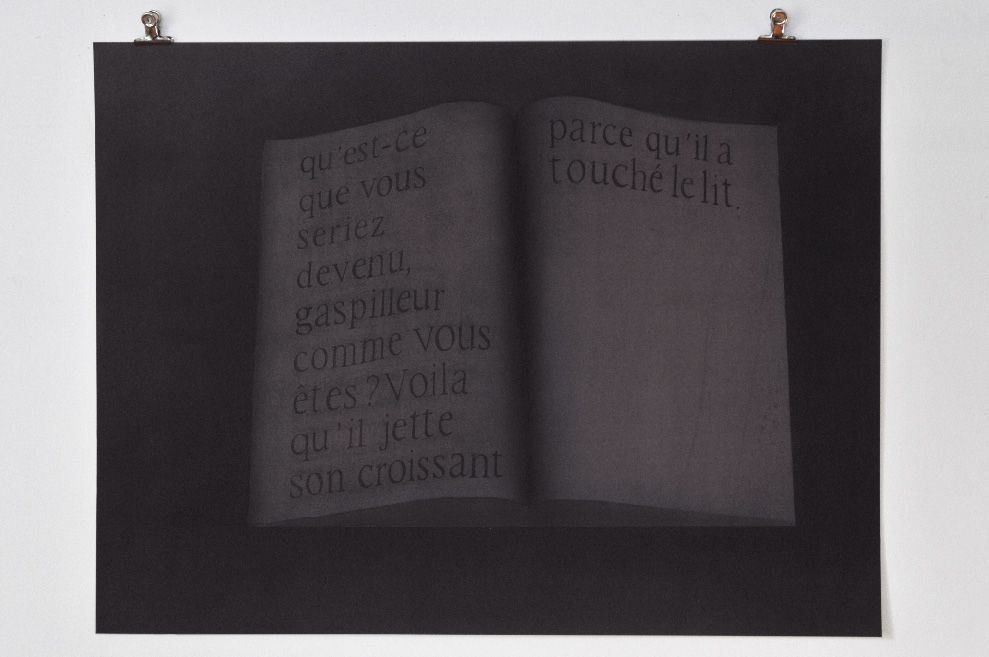 qu'est-ce
que vous
seriez
devenu,
gaspilleur
comme vous
êtes ? Voila
qu'il jette
son croissant
parce qu'il a
touché le lit.